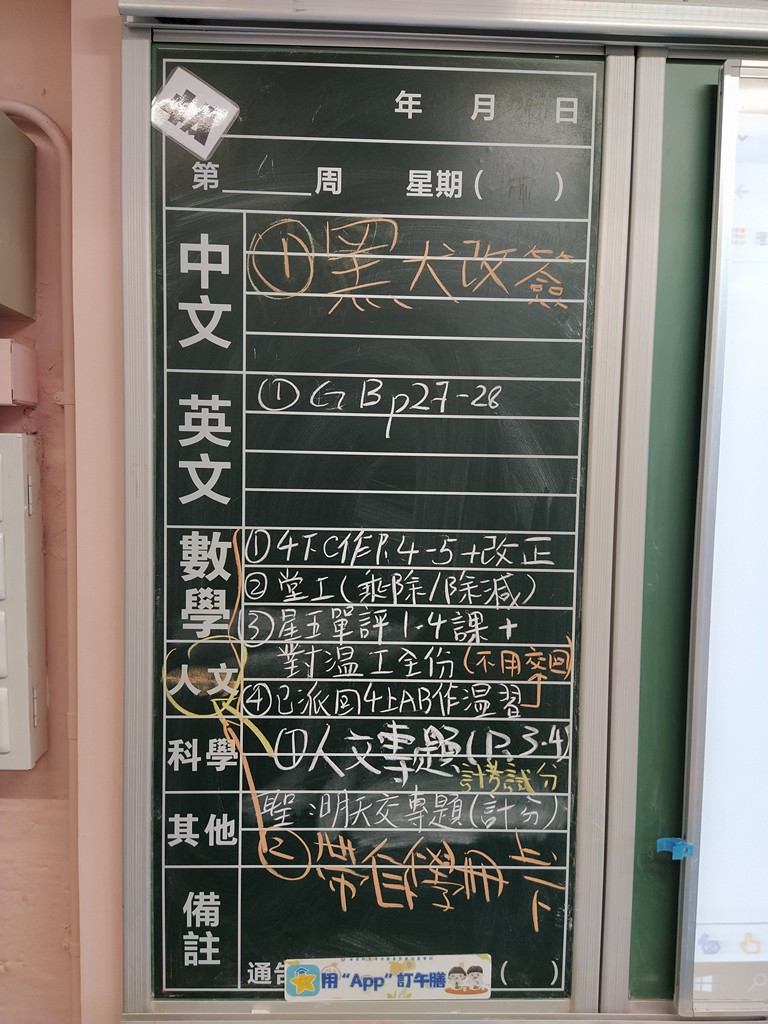 年 月 日
第____周 星期( )
中文
①黑犬改簽
英文
①GB p27-28
數學
①4下C作P.4-5+改正
②堂工(乘除/除減)
③星五單評1-4課+
對溫工全份(不用交回)
④已派回4上AB作溫習
人文
科學
①人文專題(P.3-4)
計考試分
其他
聖:明天交專題(計分)
②帶自學冊 上
下
備註
通告
( )
用“App”訂午膳